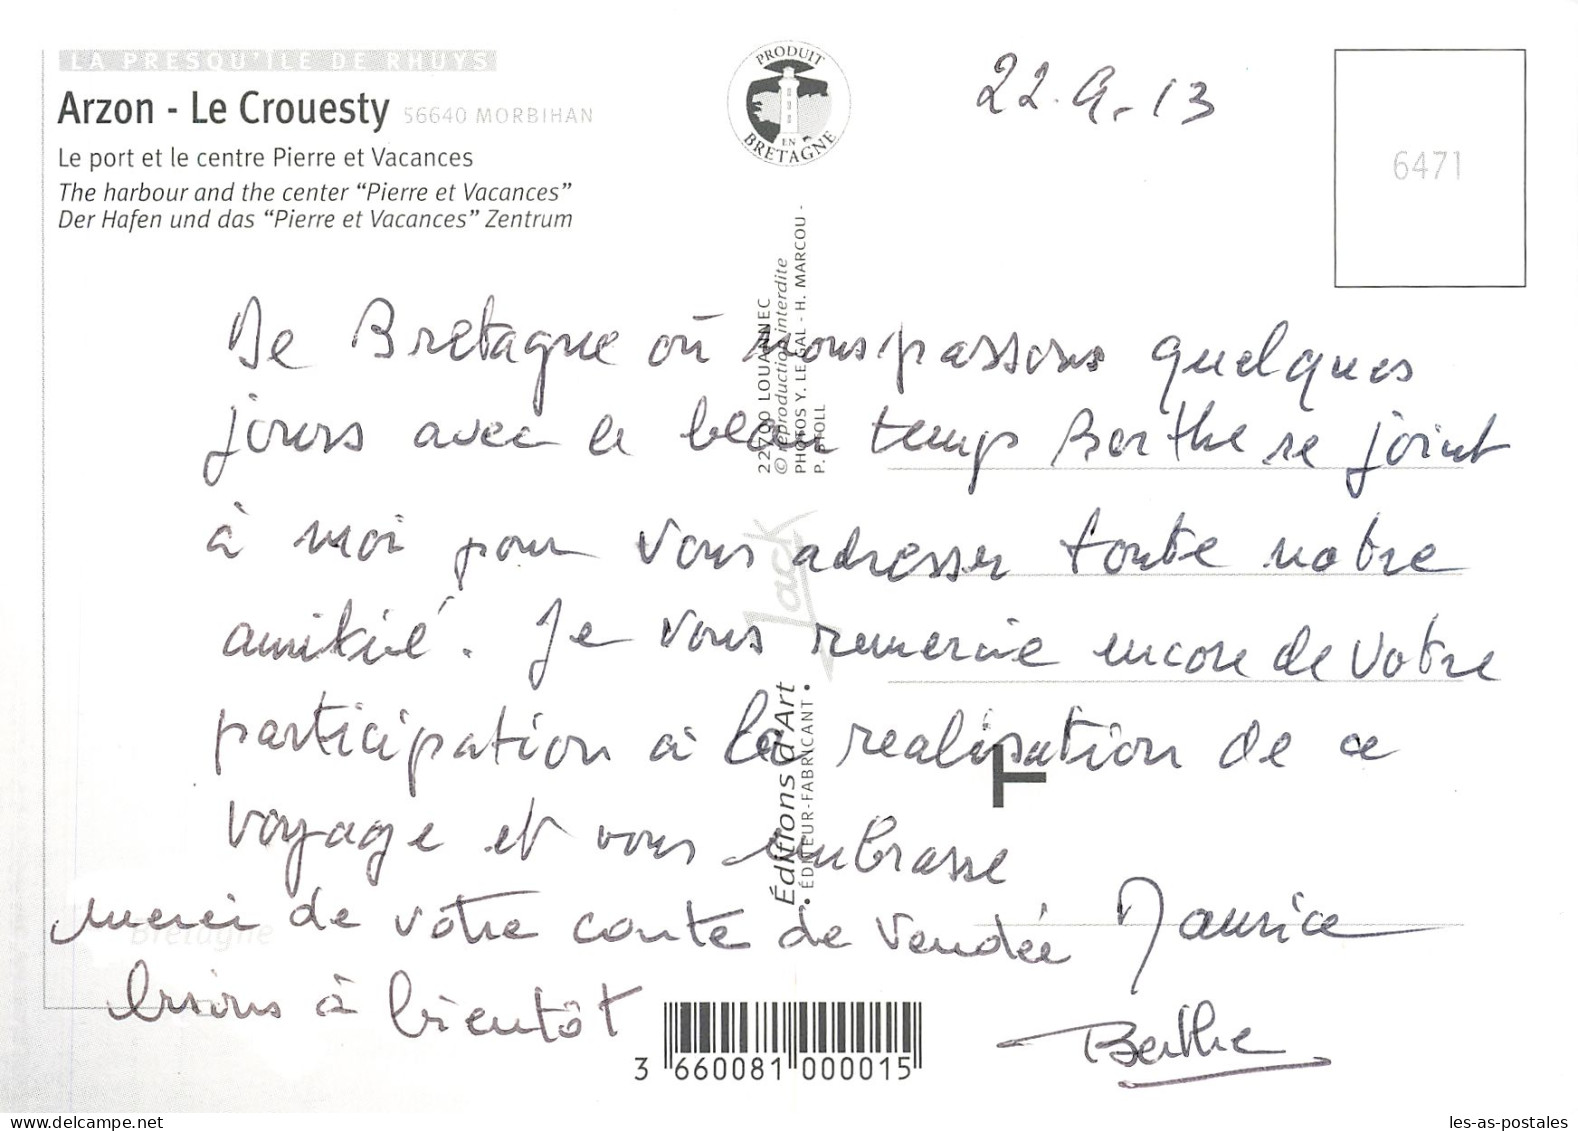 LA PRESQU'ILE DE RHUYS
Arzon - Le Crouesty 56640 MORBIHAN
Le port et le centre Pierre et Vacances
The harbour and the center "Pierre et Vacances"
Der Hafen und das "Pierre et Vacances" Zentrum
PRODUIT EN BRETAGNE
22.9.13
6471
22700 LOUANNEC
© reproduction interdite
PHOTOS Y. LE GAL - H. MARCOU -
P. STOLL
Jack
Éditions d'Art
• ÉDITEUR-FABRICANT •
De Bretagne où nous passons quelques
jours avec ce beau temps Berthe se joint
à moi pour vous adresser toute notre
amitié. Je vous remercie encore de votre
participation à la realisation de ce
voyage et vous embrasse
merci de votre carte de Vendée Maurice
bisous à bientôt
Berthe
T
Bretagne
3 660081 000015
les-as-postales